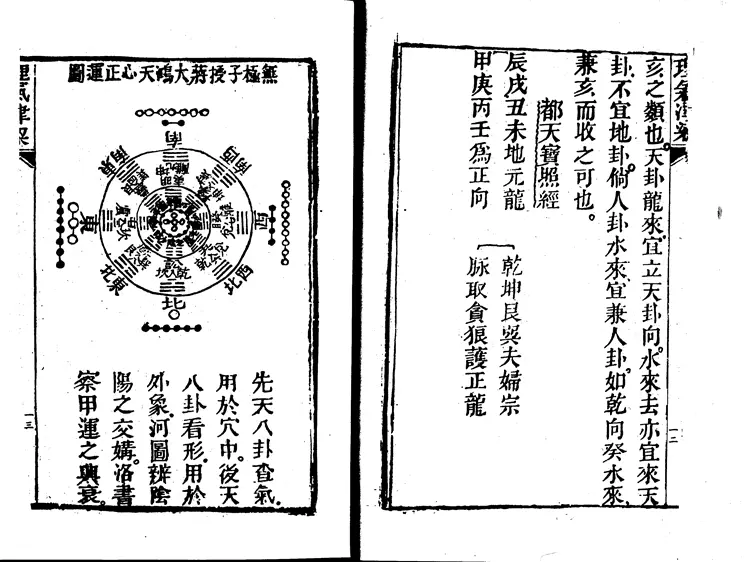 理氣津梁
亥之類也。天卦龍來。宜立天卦向。水來去亦宜來天
卦。不宜地卦。倘人卦水來。宜兼人卦。如乾向癸水來。
兼亥而收之可也。
都天寶照經
辰戌丑未地元龍 乾坤艮巽夫婦宗
甲庚丙壬為正向 脉取貪狼護正龍
一二
無極子授蔣大鴻天心正運圖
南
西南
西
西北
北
東北
東
東南
先天八卦查氣。
用於穴中。後天
八卦看形。用於
外象。河圖辨陰
陽之交媾。洛書
察甲運之興衰。
理氣津梁
一三